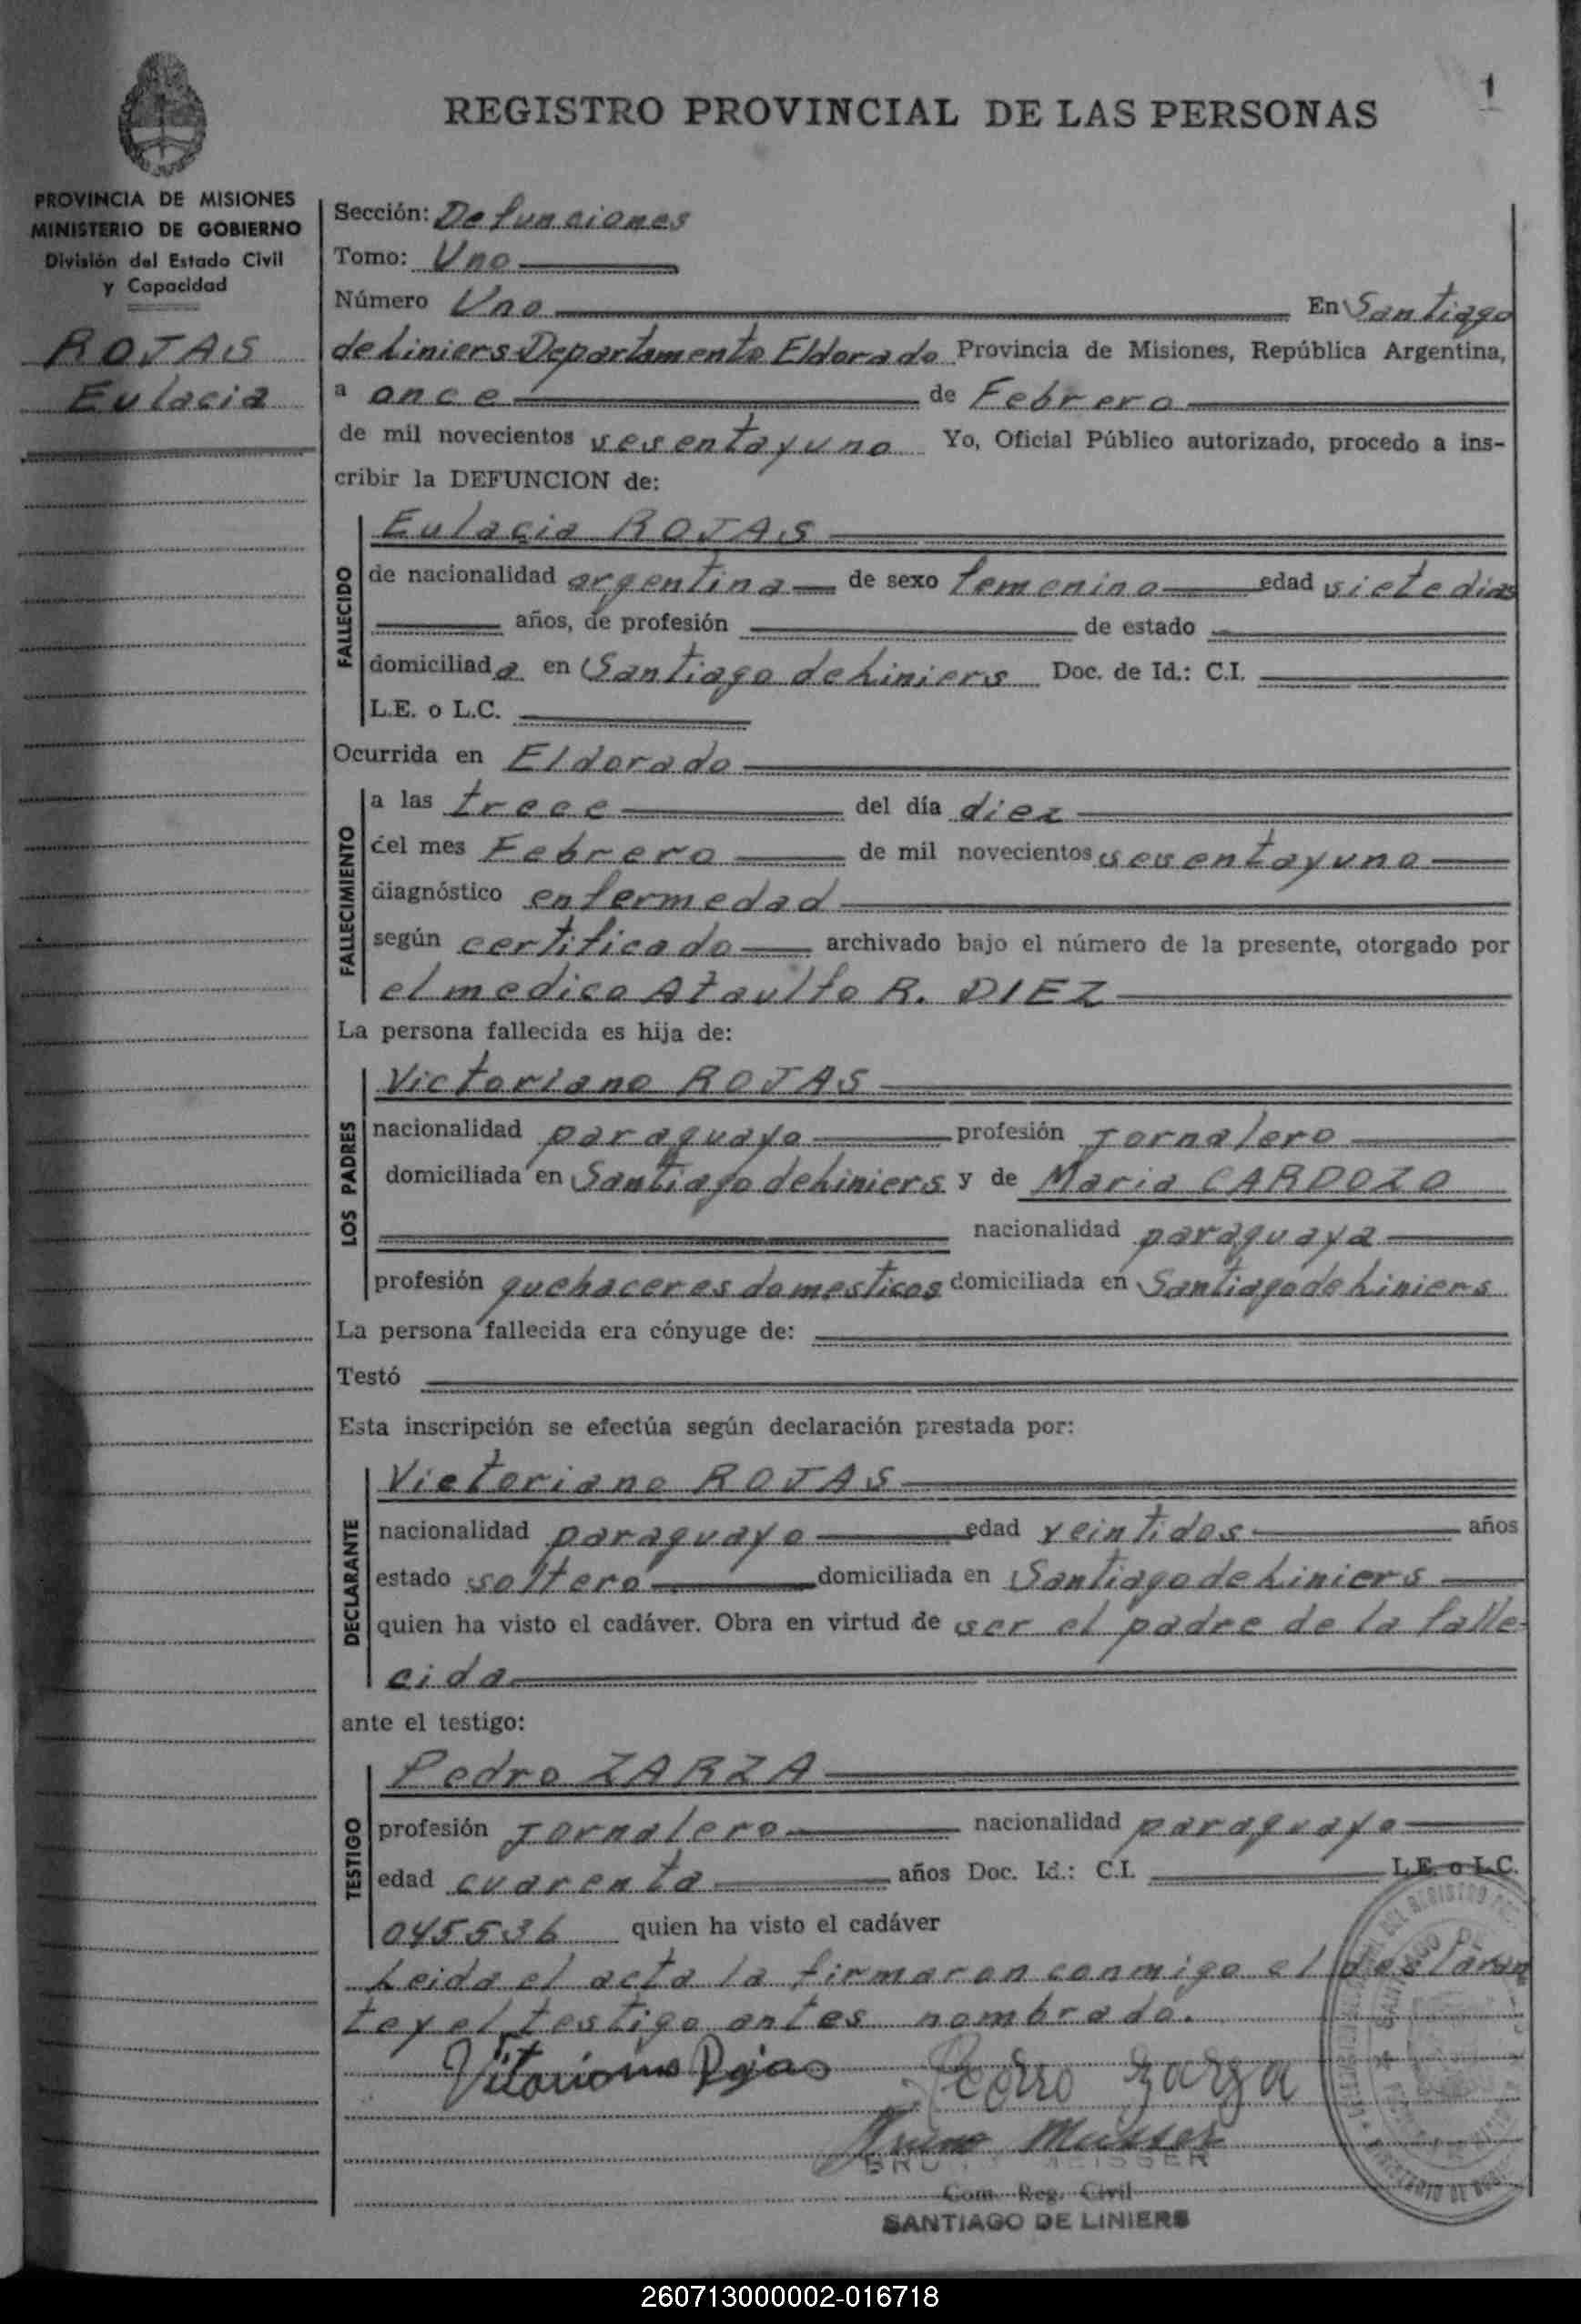 1
REGISTRO PROVINCIAL DE LAS PERSONAS
PROVINCIA DE MISIONES
MINISTERIO DE GOBIERNO
División del Estado Civil
y Capacidad
ROJAS
Eulacia
Sección: Defunciones
Tomo: Uno
Número Uno En Santiago
de Liniers Departamento Eldorado Provincia de Misiones, República Argentina,
a once de Febrero
de mil novecientos sesentayuno Yo, Oficial Público autorizado, procedo a ins-
cribir la DEFUNCION de:
FALLECIDO
Eulacia ROJAS
de nacionalidad argentina de sexo femenino edad siete dias
años, de profesión de estado
domiciliada en Santiago de Liniers Doc. de Id.: C.I.
L.E. o L.C.
Ocurrida en Eldorado
FALLECIMIENTO
a las trece del día diez
del mes Febrero de mil novecientos sesentayuno
diagnóstico enfermedad
según certificado archivado bajo el número de la presente, otorgado por
el medico Ataulfo R. DIEZ
La persona fallecida es hija de:
LOS PADRES
Victoriano ROJAS
nacionalidad paraguayo profesión Jornalero
domiciliada en Santiago de Liniers y de Maria CARDOZO
nacionalidad paraguaya
profesión quehaceres domesticos domiciliada en Santiago de Liniers
La persona fallecida era cónyuge de:
Testó
Esta inscripción se efectúa según declaración prestada por:
DECLARANTE
Victoriano ROJAS
nacionalidad paraguayo edad veintidos años
estado soltero domiciliada en Santiago de Liniers
quien ha visto el cadáver. Obra en virtud de ser el padre de la falle-
cida
ante el testigo:
TESTIGO
Pedro ZARZA
profesión Jornalero nacionalidad paraguayo
edad cuarenta años Doc. Id.: C.I. L.E. o L.C.
045536 quien ha visto el cadáver
Leida el acta la firmaron conmigo el declaran
te y el testigo antes nombrado.
Vitoriano Rojas Pedro Zarza
Com. Reg. Civil
SANTIAGO DE LINIERS
260713000002-016718